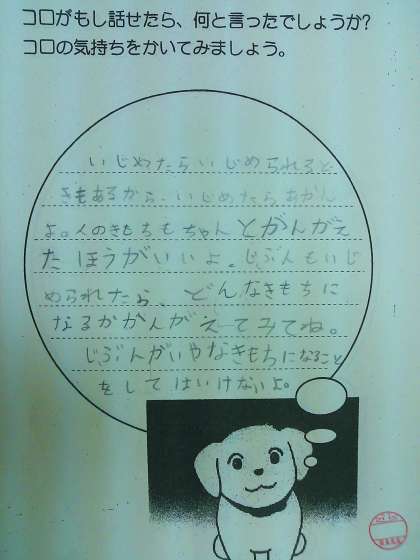 コロがもし話せたら、何と言ったでしょうか?
コロの気持ちをかいてみましょう。
いじめたらいじめられると
きもあるから、いじめたらあかん
よ。人のきもちもちゃんとかんがえ
たほうがいいよ。じぶんもいじ
められたら、どんなきもちに
なるかかんがえてみてね。
じぶんがいやなきもちになること
をしてはいけないよ。